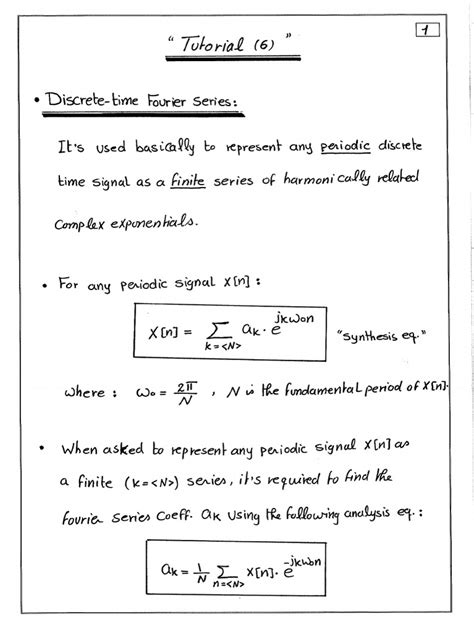 1
" Tutorial (6) "
• Discrete-time Fourier Series:
It's used basically to represent any periodic discrete
time signal as a finite series of harmonically related
Complex exponentials.
• For any periodic signal X[n] :
X[n] = Σ_{k=<N>} a_k . e^{jkω₀n} "Synthesis eq."
where : ω₀ = 2π/N , N is the fundamental period of X[n].
• When asked to represent any periodic signal X[n] as
a finite (k=<N>) series, it's required to find the
fourier series Coeff. a_k Using the following analysis eq. :
a_k = 1/N Σ_{n=<N>} X[n]. e^{-jkω₀n}